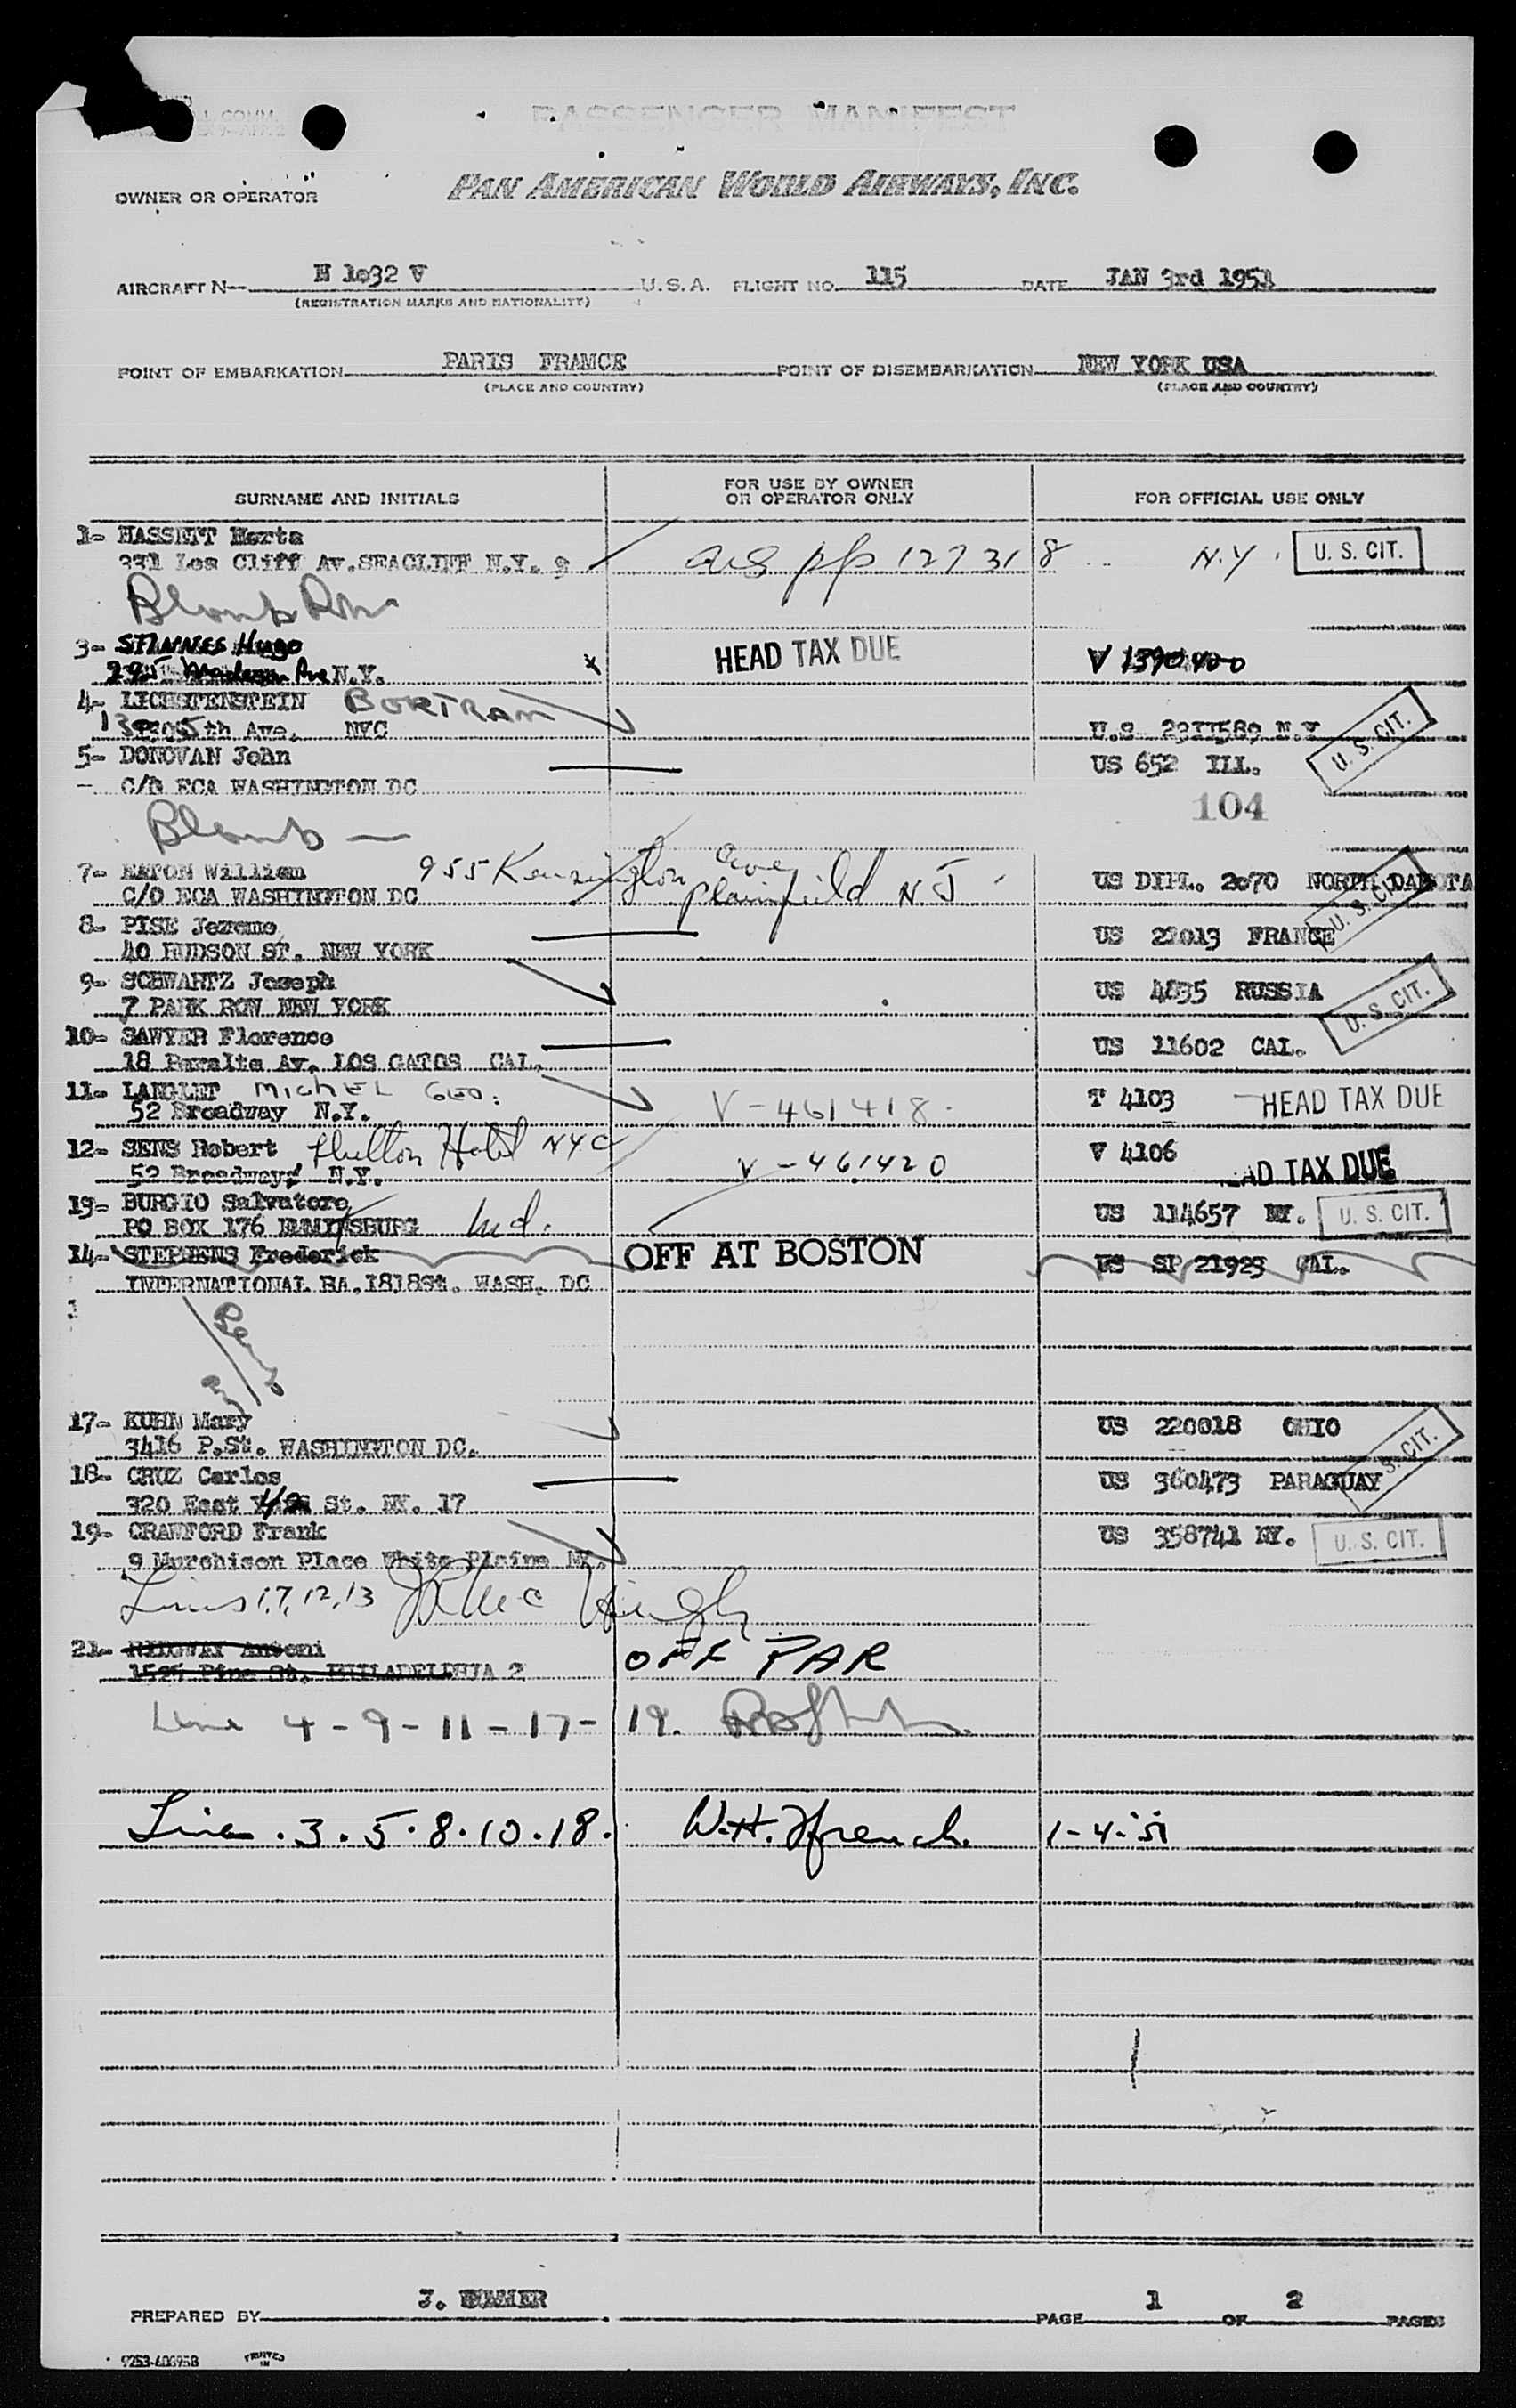 PASSENGER MANIFEST
OWNER OR OPERATOR PAN AMERICAN WORLD AIRWAYS, INC.
AIRCRAFT N N 1032 V U.S.A. FLIGHT NO. 115 DATE JAN 3rd 1951
(REGISTRATION MARKS AND NATIONALITY)
POINT OF EMBARKATION PARIS FRAMCE POINT OF DISEMBARKATION NEW YORK USA
(PLACE AND COUNTRY) (PLACE AND COUNTRY)
SURNAME AND INITIALS FOR USE BY OWNER OR OPERATOR ONLY FOR OFFICIAL USE ONLY
1- HASSETT Herta
331 Cliff Av. SEACLIFF N.Y. pp 127318 N.Y. U. S. CIT.
Blank
3- STINNES Hugo HEAD TAX DUE V 1390400
295 Madison Ave N.Y.
4- LICHSTENSTEIN BORTRAM
5th Ave. NYC U.S N.Y U. S. CIT.
5- DONOVAN John US 652 ILL.
C/O ECA WASHINGTON DC 104
Blank
7- EATON William 955 Kensington Ave Plainfield N J US DIPL. 2070 NORTH DAKOTA
C/O ECA WASHINGTON DC U. S. CIT.
8- PISE Jerome US 22013 FRANCE
40 HUDSON ST. NEW YORK
9- SCHWARTZ Joseph US 4835 RUSSIA
7 PARK ROW NEW YORK U. S. CIT.
10- SAWYER Florence US 11602 CAL.
18 Peralta Av. LOS GATOS CAL.
11- LANGLET MICHEL GEO. V-461418 T 4103 HEAD TAX DUE
52 Broadway N.Y.
12- SENS Robert Hotel NYC V-461420 V 4106
52 Broadway N.Y. AD TAX DUE
13- BURGIO Salvatore US 114657 NY. U. S. CIT.
PO BOX 176 Md.
14- STEPHENS Frederick OFF AT BOSTON US SP 21923 CAL.
INTERNATIONAL BA. 1818St. WASH. DC
17- KUHN Mary US 220018 OHIO
3416 P.St. WASHINGTON DC. S. CIT.
18- CRUZ Carlos US 360473 PARAGUAY
320 East 42 St. NY. 17
19- CRAWFORD Frank US 358741 NY. U. S. CIT.
9 Murchison Place White Plains NY.
Lines 1, 7, 12, 13
21- OFF PAR
1525 Pine St. PHILADELPHIA 2
Line 4-9-11-17-19.
Line . 3 . 5 . 8 . 10 . 18 . W.H. French 1-4-51
1
PREPARED BY J. PAGE 1 OF 2 PAGES
PRINTED IN